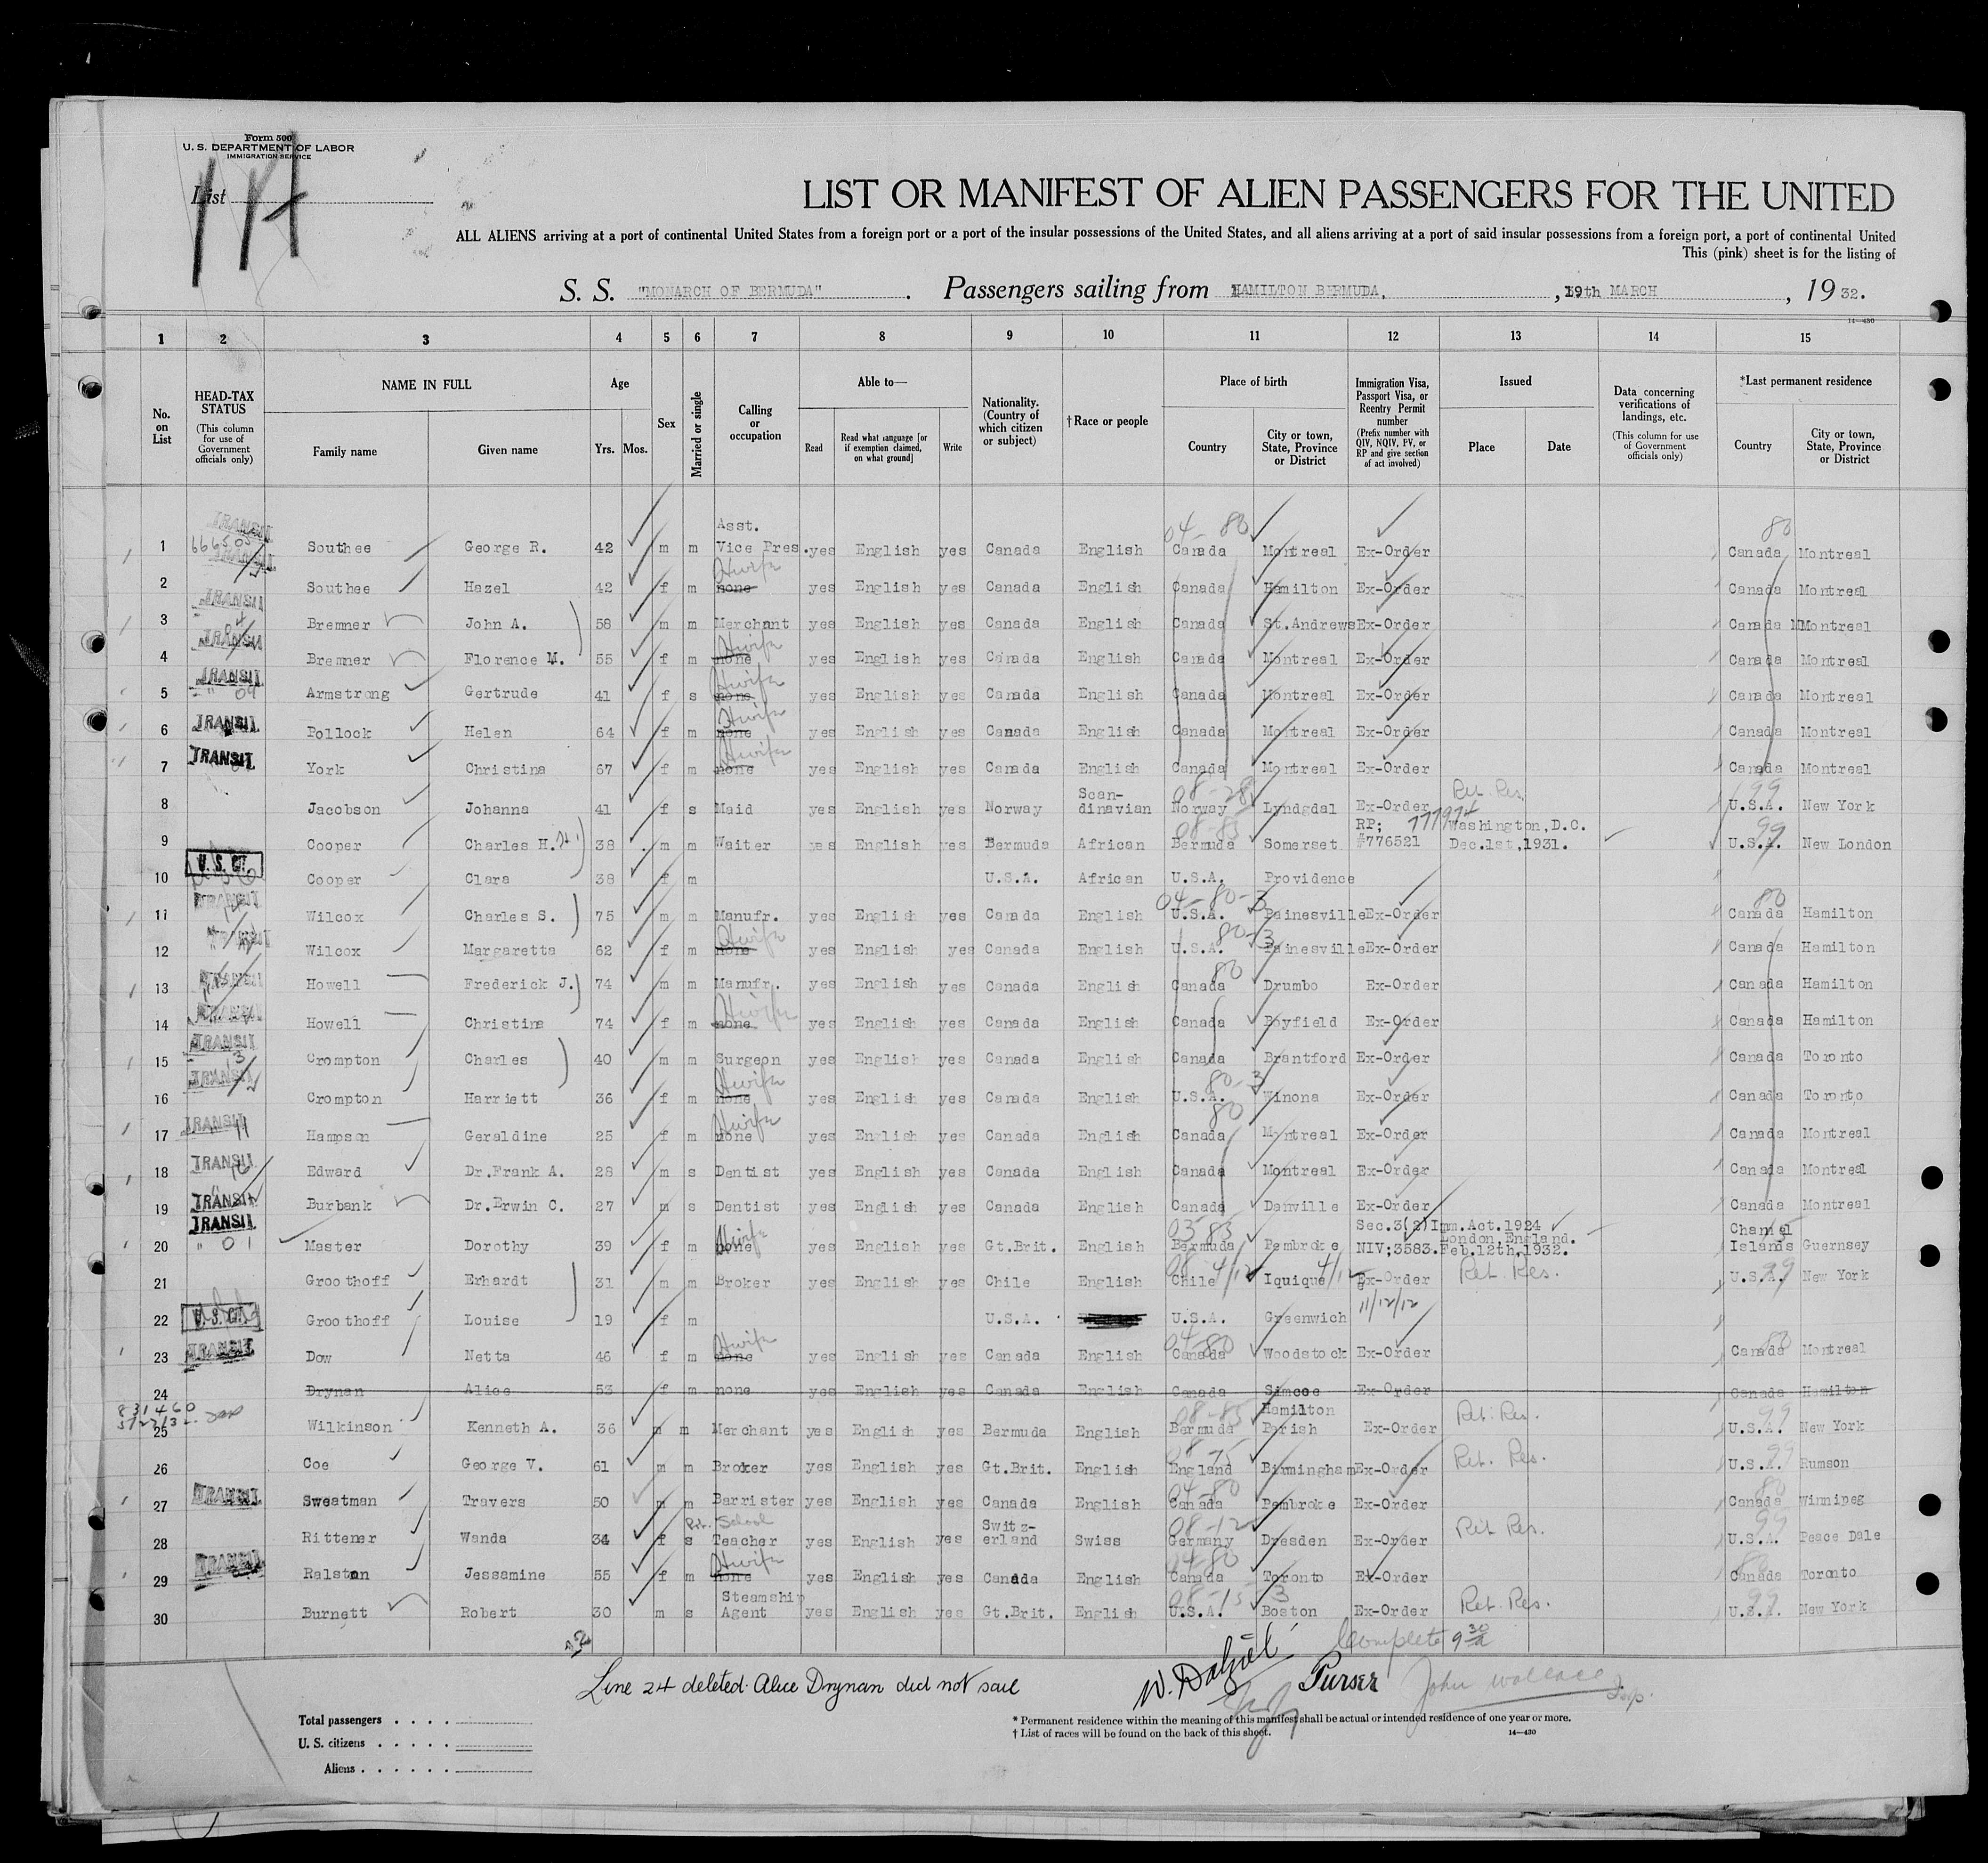 Form 500
U. S. DEPARTMENT OF LABOR
IMMIGRATION SERVICE
List
LIST OR MANIFEST OF ALIEN PASSENGERS FOR THE UNITED
ALL ALIENS arriving at a port of continental United States from a foreign port or a port of the insular possessions of the United States, and all aliens arriving at a port of said insular possessions from a foreign port, a port of continental United
This (pink) sheet is for the listing of
S. S. "MONARCH OF BERMUDA". Passengers sailing from HAMILTON BERMUDA, , 19th MARCH , 1932.
14—430
1 2 3 4 5 6 7 8 9 10 11 12 13 14 15
No. on List
HEAD-TAX STATUS (This column for use of Government officials only)
NAME IN FULL Family name Given name
Age Yrs. Mos.
Sex
Married or single
Calling or occupation
Able to— Read Read what language [or if exemption claimed, on what ground] Write
Nationality. (Country of which citizen or subject)
†Race or people
Place of birth Country City or town, State, Province or District
Immigration Visa, Passport Visa, or Reentry Permit number (Prefix number with QIV, NQIV, PV, or RP and give section of act involved)
Issued Place Date
Data concerning verifications of landings, etc. (This column for use of Government officials only)
*Last permanent residence Country City or town, State, Province or District
1 TRANSIT Southee George R. 42 m m Asst. Vice Pres. yes English yes Canada English 04-80 Canada Montreal Ex-Order 80 Canada Montreal
2 TRANSIT Southee Hazel 42 f m none Hwife yes English yes Canada English Canada Hamilton Ex-Order Canada Montreal
3 Bremner John A. 58 m m Merchant yes English yes Canada English Canada St.Andrews Ex-Order Canada Montreal
4 TRANSIT Bremner Florence M. 55 f m none Hwife yes English yes Canada English Canada Montreal Ex-Order Canada Montreal
5 TRANSIT 09 Armstrong Gertrude 41 f s none Hwife yes English yes Canada English Canada Montreal Ex-Order Canada Montreal
6 TRANSIT Pollock Helen 64 f m none Hwife yes English yes Canada English Canada Montreal Ex-Order Canada Montreal
7 TRANSIT York Christina 67 f m none Hwife yes English yes Canada English Canada Montreal Ex-Order Canada Montreal
8 Jacobson Johanna 41 f s Maid yes English yes Norway Scan-dinavian Norway Lyndgdal Ex-Order Ret. Res. 99 U.S.A. New York
9 Cooper Charles H. 38 m m Waiter yes English yes Bermuda African 08-83 Bermuda Somerset RP; #776521 777974 Washington, D.C. Dec.1st,1931. 99 U.S.A. New London
10 U.S.C. Cooper Clara 38 f m U.S.A. African U.S.A. Providence
11 TRANSIT Wilcox Charles S. 75 m m Manufr. yes English yes Canada English 04-80-3 U.S.A. Painesville Ex-Order 80 Canada Hamilton
12 TRANSIT Wilcox Margaretta 62 f m none Hwife yes English yes Canada English 80-3 U.S.A. Painesville Ex-Order Canada Hamilton
13 TRANSIT Howell Frederick J. 74 m m Manufr. yes English yes Canada English 80 Canada Drumbo Ex-Order Canada Hamilton
14 TRANSIT Howell Christina 74 f m none Hwife yes English yes Canada English Canada Bayfield Ex-Order Canada Hamilton
15 TRANSIT 13 Crompton Charles 40 m m Surgeon yes English yes Canada English Canada Brantford Ex-Order Canada Toronto
16 TRANSIT Crompton Harriett 36 f m none Hwife yes English yes Canada English 80-3 U.S.A. Winona Ex-Order Canada Toronto
17 TRANSIT 11 Hampson Geraldine 25 f m none Hwife yes English yes Canada English 80 Canada Montreal Ex-Order Canada Montreal
18 TRANSIT Edward Dr.Frank A. 28 m s Dentist yes English yes Canada English Canada Montreal Ex-Order Canada Montreal
19 TRANSIT Burbank Dr.Erwin C. 27 m s Dentist yes English yes Canada English Canada Danville Ex-Order Canada Montreal
20 TRANSIT " 01 Master Dorothy 39 f m none Hwife yes English yes Gt.Brit. English Bermuda Pembroke Sec.3(2)Imm.Act.1924 NIV;3583. London, England. Feb.12th,1932. Channel Islands Guernsey
21 Groothoff Erhardt 31 m m Broker yes English yes Chile English Chile Iquique Ex-Order Ret. Res. 99 U.S.A. New York
22 U.S.C. Groothoff Louise 19 f m U.S.A. U.S.A. Greenwich 11/12/12
23 TRANSIT Dow Netta 46 f m none Hwife yes English yes Canada English 04-80 Canada Woodstock Ex-Order 80 Canada Montreal
24 Drynan Alice 53 f m none yes English yes Canada English Canada Simcoe Ex-Order Canada Hamilton
25 Wilkinson Kenneth A. 36 m m Merchant yes English yes Bermuda English 08-83 Bermuda Hamilton Parish Ex-Order Ret. Res. 99 U.S.A. New York
26 Coe George V. 61 m m Broker yes English yes Gt.Brit. English England Birmingham Ex-Order Ret. Res. 99 U.S.A. Rumson
27 TRANSIT Sweatman Travers 50 m m Barrister yes English yes Canada English 04-80 Canada Pembroke Ex-Order 80 Canada Winnipeg
28 Rittener Wanda 34 f s Pri. School Teacher yes English yes Switz-erland Swiss 08-12 Germany Dresden Ex-Order Ret Res. 99 U.S.A. Peace Dale
29 TRANSIT Ralston Jessamine 55 f m none Hwife yes English yes Canada English 04-80 Canada Toronto Ex-Order 80 Canada Toronto
30 Burnett Robert 30 m s Steamship Agent yes English yes Gt.Brit. English 08-15 3 U.S.A. Boston Ex-Order Ret. Res. 99 U.S.A. New York
Complete 9 30 a
Line 24 deleted. Alice Drynan did not sail
W. Dalziel Purser John Wallace Insp.
Total passengers . . . .
U. S. citizens . . . . .
Aliens . . . . . .
* Permanent residence within the meaning of this manifest shall be actual or intended residence of one year or more.
† List of races will be found on the back of this sheet.
14—430